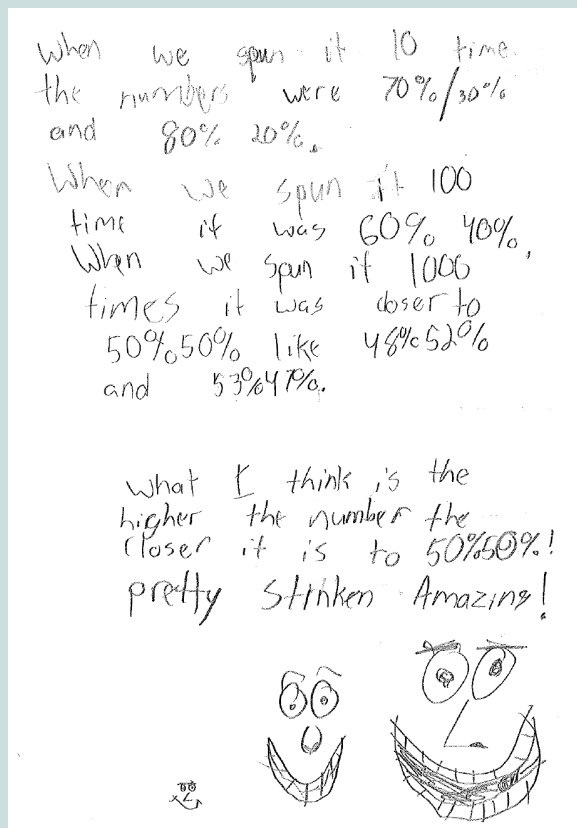 When we spun it 10 time.
the numbers were 70%/30%
and 80% 20%.
When we spun it 100
time it was 60% 40%.
When we spun it 1000
times it was closer to
50%50% like 48%52%
and 53%47%.
What I think is the
higher the number the
closer it is to 50%50%!
pretty Stinken Amazing!